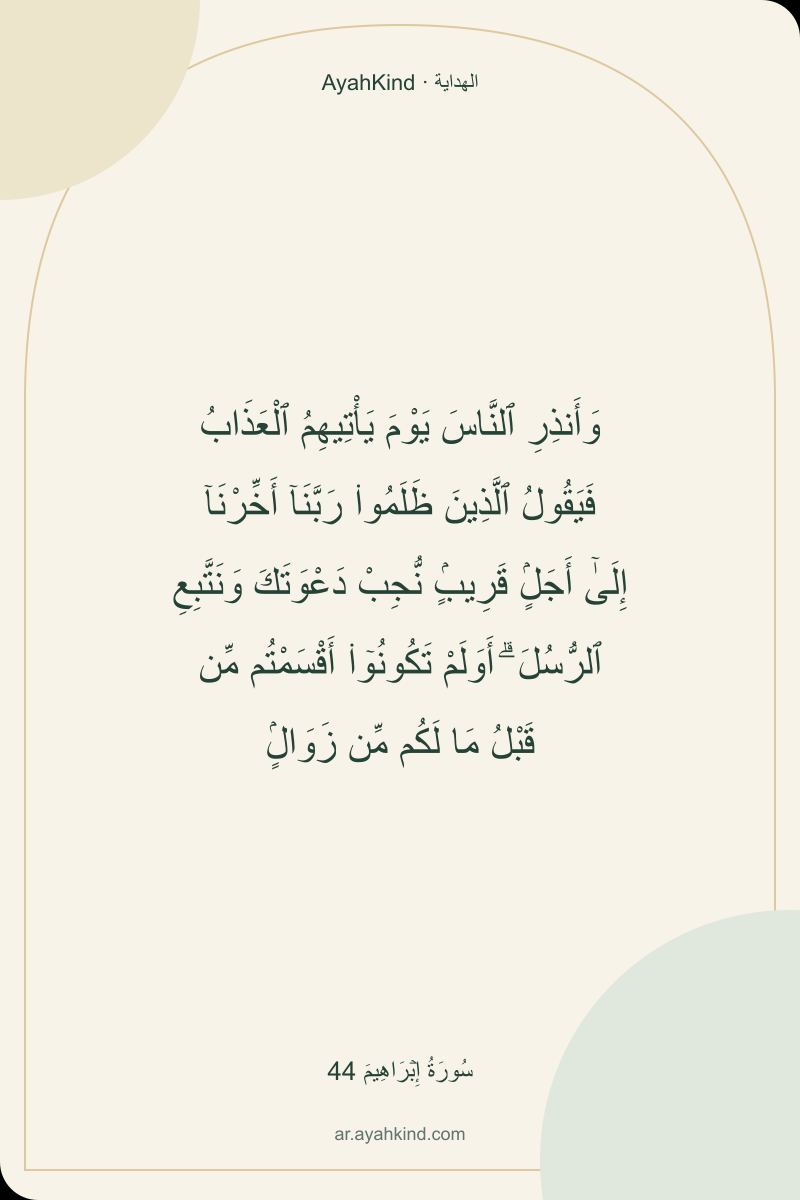 AyahKind · الهداية
وَأَنذِرِ ٱلنَّاسَ يَوْمَ يَأْتِيهِمُ ٱلْعَذَابُ
فَيَقُولُ ٱلَّذِينَ ظَلَمُوا۟ رَبَّنَآ أَخِّرْنَآ
إِلَىٰٓ أَجَلٍۢ قَرِيبٍۢ نُّجِبْ دَعْوَتَكَ وَنَتَّبِعِ
ٱلرُّسُلَ ۗ أَوَلَمْ تَكُونُوٓا۟ أَقْسَمْتُم مِّن
قَبْلُ مَا لَكُم مِّن زَوَالٍۢ
سُورَةُ إِبۡرَاهِيمَ 44
ar.ayahkind.com